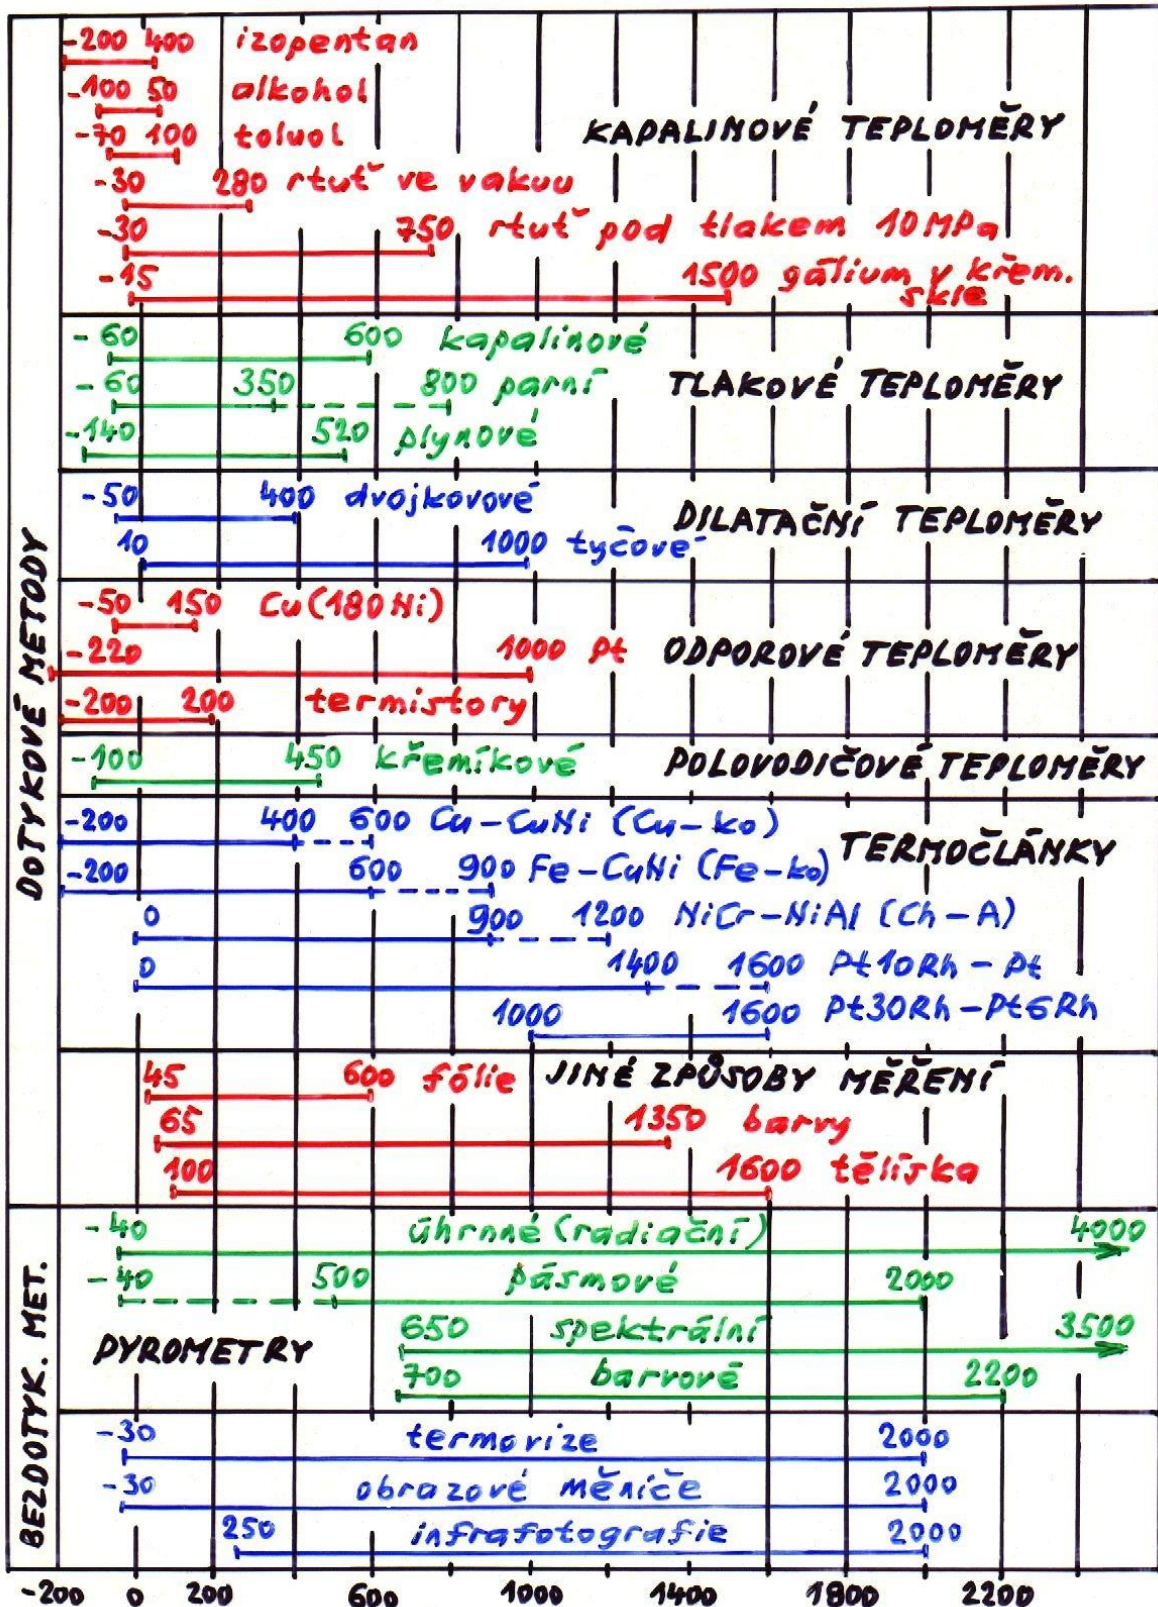 -200 400 izopentan
-100 50 alkohol
-70 100 toluol
KAPALINOVÉ TEPLOMĚRY
-30 280 rtuť ve vakuu
-30 750 rtuť pod tlakem 10MPa
-15 1500 gálium v křem.
skle
-60 600 kapalinové
-60 350 800 parní
TLAKOVÉ TEPLOMĚRY
-140 520 plynové
-50 400 dvojkovové
DILATAČNÍ TEPLOMĚRY
10 1000 tyčové
-50 150 Cu (180 Ni)
-220 1000 Pt
ODPOROVÉ TEPLOMĚRY
-200 200 termistory
-100 450 křemíkové
POLOVODIČOVÉ TEPLOMĚRY
-200 400 600 Cu-CuNi (Cu-ko)
TERMOČLÁNKY
-200 600 900 Fe-CuNi (Fe-ko)
0 900 1200 NiCr-NiAl (Ch-A)
0 1400 1600 Pt10Rh-Pt
1000 1600 Pt30Rh-Pt6Rh
JINÉ ZPŮSOBY MĚŘENÍ
45 600 fólie
65 1350 barvy
100 1600 tělíska
DOTYKOVÉ METODY
-40 úhrnné (radiační) 4000
-40 500 pásmové 2000
650 spektrální 3500
PYROMETRY
700 barvové 2200
-30 termovize 2000
-30 obrazové měniče 2000
250 infrafotografie 2000
BEZDOTYK. MET.
-200 0 200 600 1000 1400 1800 2200